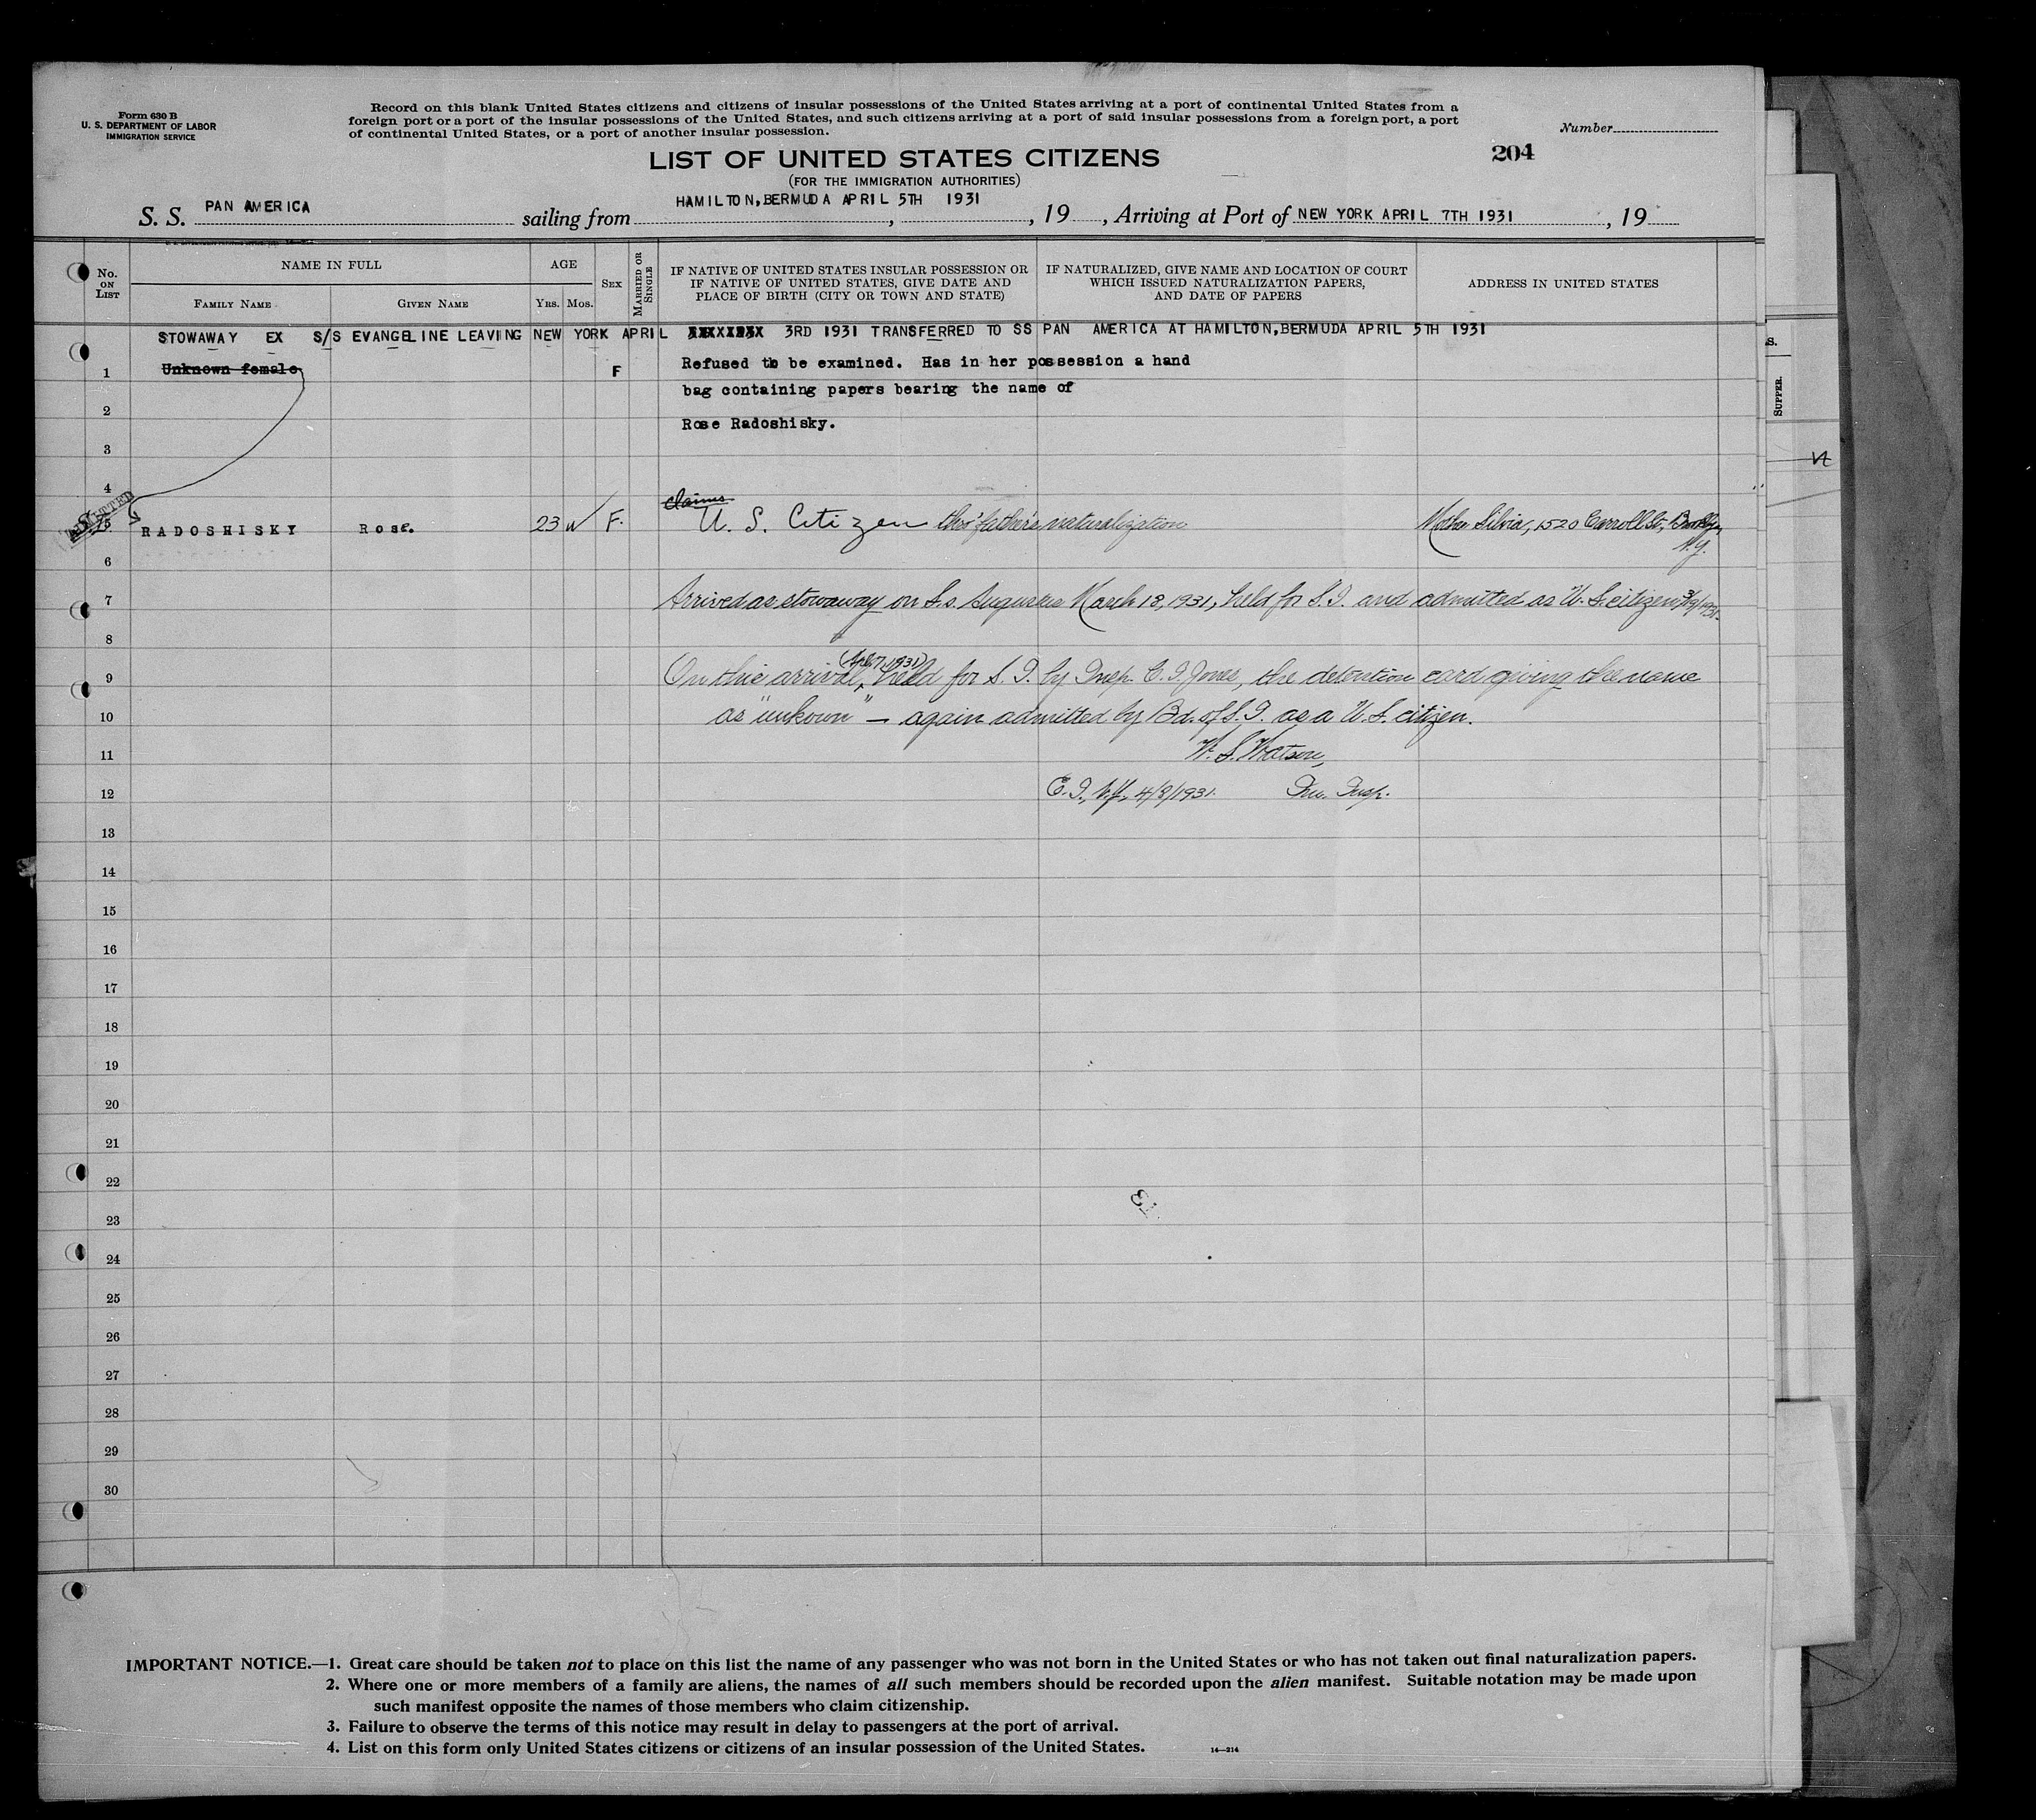 Form 630 B
U. S. DEPARTMENT OF LABOR
IMMIGRATION SERVICE
Record on this blank United States citizens and citizens of insular possessions of the United States arriving at a port of continental United States from a
foreign port or a port of the insular possessions of the United States, and such citizens arriving at a port of said insular possessions from a foreign port, a port
of continental United States, or a port of another insular possession.
Number
204
LIST OF UNITED STATES CITIZENS
(FOR THE IMMIGRATION AUTHORITIES)
S. S. PAN AMERICA sailing from HAMILTON,BERMUDA APRIL 5TH 1931, 19 , Arriving at Port of NEW YORK APRIL 7TH 1931, 19
No. ON LIST
NAME IN FULL
FAMILY NAME
GIVEN NAME
AGE
YRS. MOS.
SEX
MARRIED OR SINGLE
IF NATIVE OF UNITED STATES INSULAR POSSESSION OR
IF NATIVE OF UNITED STATES, GIVE DATE AND
PLACE OF BIRTH (CITY OR TOWN AND STATE)
IF NATURALIZED, GIVE NAME AND LOCATION OF COURT
WHICH ISSUED NATURALIZATION PAPERS,
AND DATE OF PAPERS
ADDRESS IN UNITED STATES
STOWAWAY EX S/S EVANGELINE LEAVING NEW YORK APRIL 3RD 1931 TRANSFERRED TO SS PAN AMERICA AT HAMILTON,BERMUDA APRIL 5TH 1931
1 Unknown female F Refused to be examined. Has in her possession a hand
bag containing papers bearing the name of
2
Rose Radoshisky.
3
4
ADMITTED
claims
5 RADOSHISKY Rose. 23 F. U. S. Citizen thro' father's naturalization Mother Silvia, 1520 Carroll St, Brooklyn,
N.Y.
6
7 Arrived as stowaway on S.s. Augustus March 18, 1931, held for S.I. and admitted as U.S. citizen 3/19/1931.
8
(Apl. 7, 1931)
9 On this arrival, held for S.I. by Insp. C. I. Jones, the detention card giving the name
10 as "unkown" — again admitted by Bd. of S.I. as a U.S. citizen.
11 W. S. Watson,
12 E.I., N.Y., 4/8/1931. Imm. Insp.
13
14
15
16
17
18
19
20
21
22
23
24
25
26
27
28
29
30
IMPORTANT NOTICE.—1. Great care should be taken not to place on this list the name of any passenger who was not born in the United States or who has not taken out final naturalization papers.
2. Where one or more members of a family are aliens, the names of all such members should be recorded upon the alien manifest. Suitable notation may be made upon
such manifest opposite the names of those members who claim citizenship.
3. Failure to observe the terms of this notice may result in delay to passengers at the port of arrival.
4. List on this form only United States citizens or citizens of an insular possession of the United States.
14—214
SUPPER.